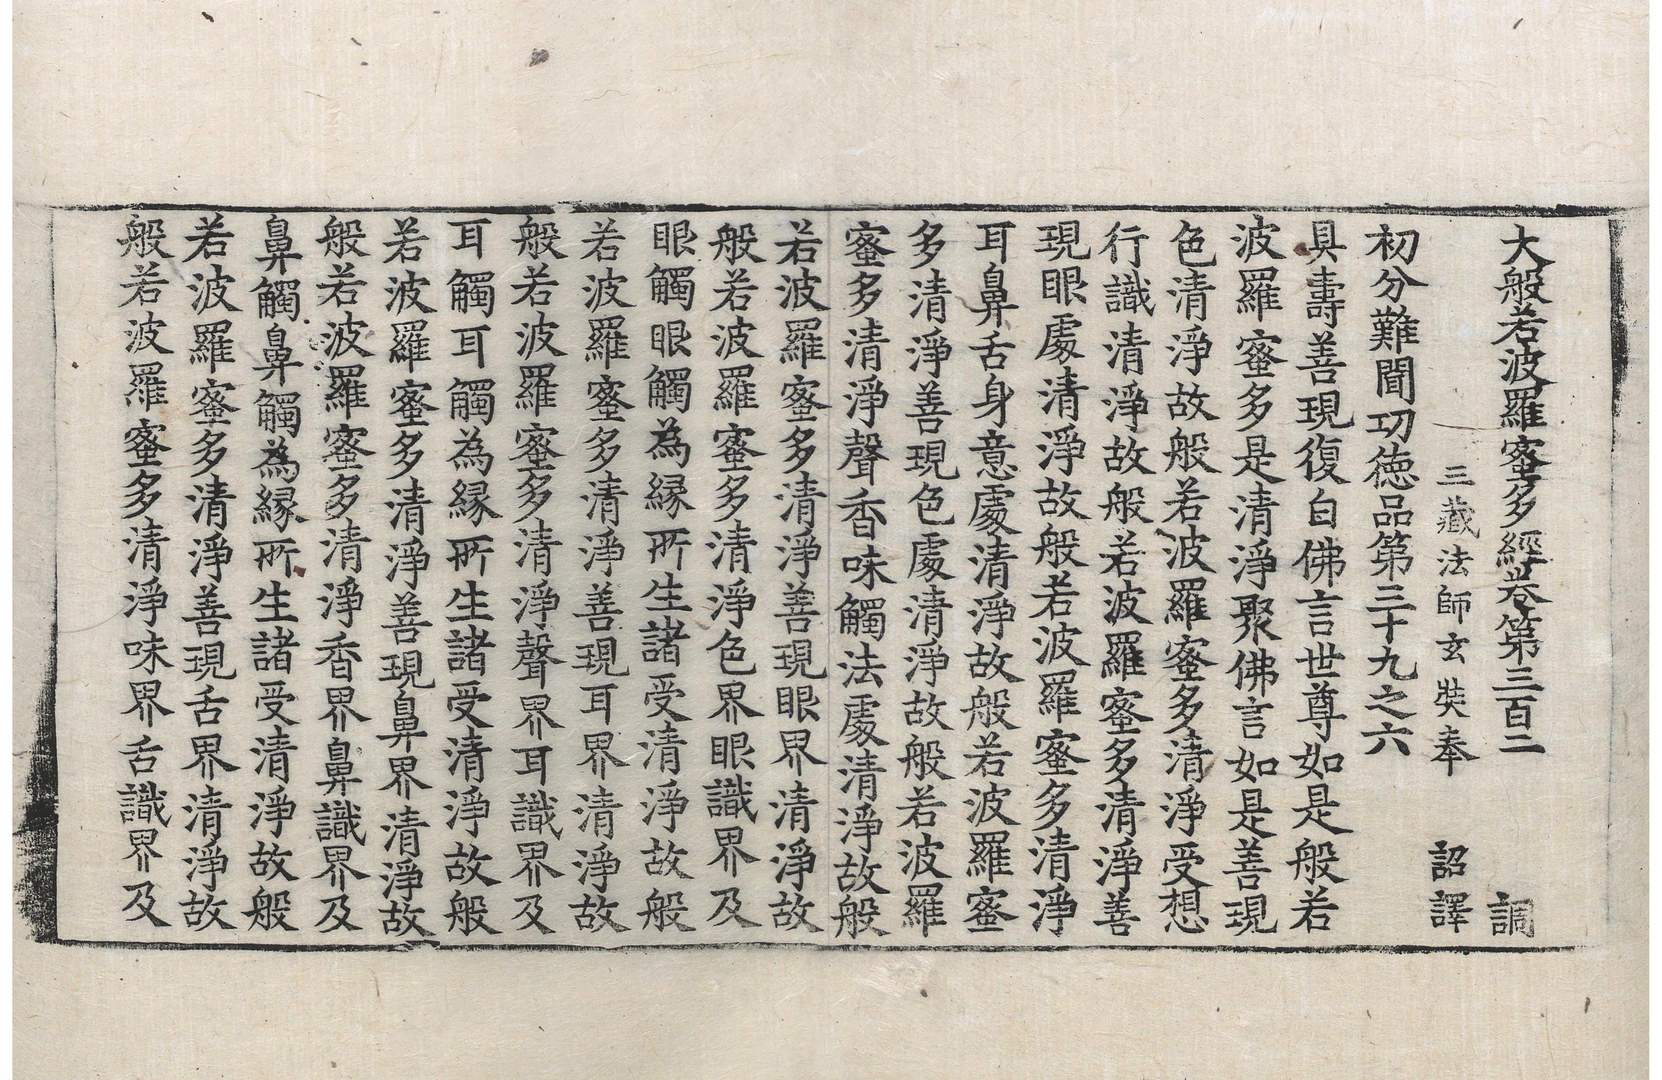 大般若波羅蜜多經卷第三百二　調
三藏法師玄奘奉　詔譯
初分難聞功徳品第三十九之六
具壽善現復白佛言世尊如是般若
波羅蜜多是清淨聚佛言如是善現
色清淨故般若波羅蜜多清淨受想
行識清淨故般若波羅蜜多清淨善
現眼處清淨故般若波羅蜜多清淨
耳鼻舌身意處清淨故般若波羅蜜
多清淨善現色處清淨故般若波羅
蜜多清淨聲香味觸法處清淨故般
若波羅蜜多清淨善現眼界清淨故
般若波羅蜜多清淨色界眼識界及
眼觸眼觸為縁所生諸受清淨故般
若波羅蜜多清淨善現耳界清淨故
般若波羅蜜多清淨聲界耳識界及
耳觸耳觸為縁所生諸受清淨故般
若波羅蜜多清淨善現鼻界清淨故
般若波羅蜜多清淨香界鼻識界及
鼻觸鼻觸為縁所生諸受清淨故般
若波羅蜜多清淨善現舌界清淨故
般若波羅蜜多清淨味界舌識界及